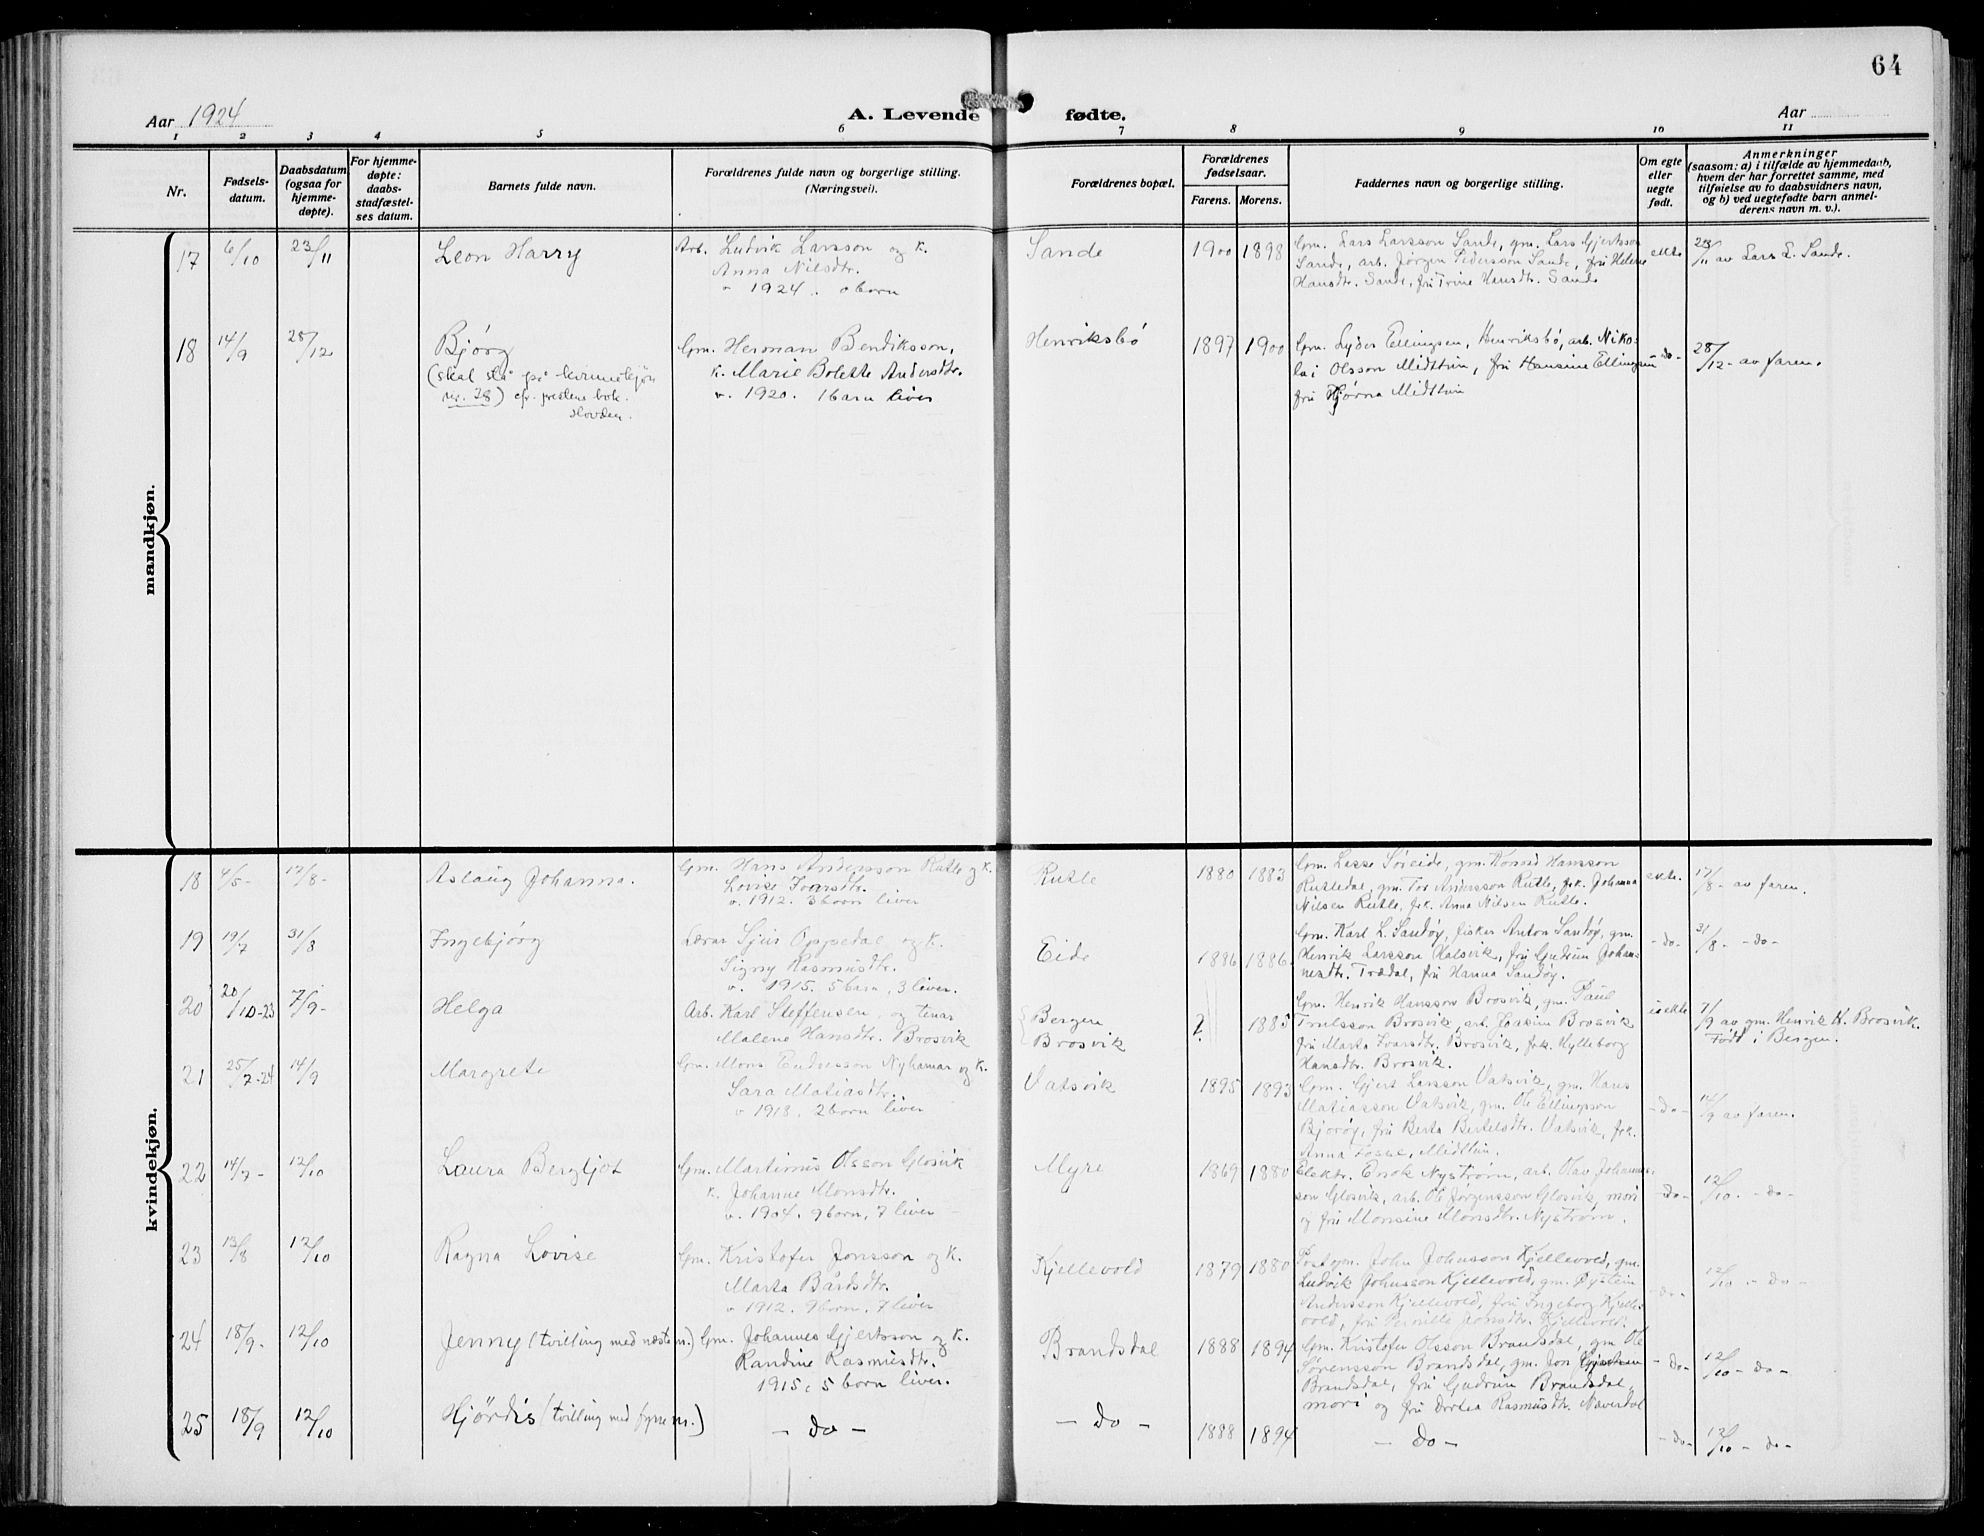 64
Aar 1924
A. Levende fødte.
Aar
1 2 3 4 5 6 7 8 9 10 11
Nr.
Fødsels-
datum.
Daabsdatum
(ogsaa for
hjemme-
døpte).
For hjemme-
døpte:
daabs-
stadfæstel-
ses datum.
Barnets fulde navn.
Forældrenes fulde navn og borgerlige stilling.
(Næringsvei).
Forældrenes bopæl.
Forældrenes
fødselsaar.
Farens. Morens.
Faddernes navn og borgerlige stilling.
Om egte
eller
uegte
født.
Anmerkninger
(saasom: a) i tilfælde av hjemmedaab,
hvem der har forrettet samme, med
tilføielse av to daabsvidners navn,
og b) ved uegtefødte barn anmel-
derens navn m. v.).
mandkjøn.
17 6/10 23/11 Leon Harry
Arb. Ludvik Larsson og k.
Anna Nilsdtr.
v 1924. 0 born
Sande 1900 1898
Gm. Lars Larsson Sande, gm. Lars Gjertsson
Sande, arb. Jørgen Pedersson Sande, fru Helene
Hansdtr. Sande, fru Trine Hansdtr. Sande
ekte 23/11 av Lars L. Sande.
18 14/9 28/12 Bjørg
(skal stå på kvinnekjøn
nr. 28) cfr. prestens bok.
Hovden.
Gm. Herman Bendiksson,
k. Marie Bolette Andersdtr.
v. 1920. 1 barn liver
Henriksbö 1897 1900
Gm. Lyder Ellingsen, Henriksbö, arb. Niko-
lai Olsson Midttun, fru Hansine Ellingsen
fru Hjørna Midttun
- do - 28/12 - av faren.
kvindekjøn.
18 4/5 - 17/8 - Aslaug Johanna.
Gm. Hans Andersson Rutle og k.
Lovise Ivarsdtr.
v. 1912. 3 born liver
Rutle 1880 1883
Gm. Lasse Søreide, gm. Hansson
Rutledal, gm. Tor Andersson Rutle, frk. Johanna
Nilsen Rutle, frk. Anna Nilsen Rutle.
ekte. 17/8 - av faren.
19 19/7 31/8 Ingebjörg
Lærar Sjur Oppedal og k.
Signy Rasmusdtr.
v. 1915. 5 barn, 3 liver.
Eide 1886 1886.
Gm. Karl L. Sandøy, fisker Anton Sandøy, gm.
Henrik Larsson Halsvik, fru Gudrun Johan-
nesdtr. Trædal, fru Hanna Sandøy.
- do - 31/8 - do -
20 20/10-23 7/9 - Helga
Arb. Karl Steffensen, og tenar
Malene Hansdtr. Brosvik
Bergen
Brosvik
? 1885
Gm. Henrik Hansson Brosvik, gm. Paul
Trulsson Brosvik, arb. Joakim Brosvik
fru Marta Ivarsdtr. Brosvik, frk. Hylleborg
Hansdtr. Brosvik.
uekte 7/9 av gm. Henrik H. Brosvik.
Født i Bergen.
21 25/7-24 14/9 Margrete
Gm. Mons Nyhamar og k.
Sara Matiasdtr.
v 1918. 2 born liver
Vatsvik 1895 1893
Gm. Gjert Larsson Vatsvik, gm. Hans
Matiasson Vatsvik, gm. Ole Ellingsson
Bjorøy, fru Berta Bertelsdtr. Vatsvik, frk.
Anna Midttun.
- do - 14/9 av faren.
22 14/7 - 12/10 Laura Bergljot
Gm. Martinus Olsson Glosvik
k. Johanne Monsdtr.
v. 1904. 9 born, 7 liver
Myre 1869 1880
Elektr. Enok Nystrøm, arb. Olav Johannes-
son Glosvik, arb. Ole Jørgensson Glosvik, mori
og fru Monsine Monsdtr. Nystrøm.
- do - 12/10 - do -
23 13/8 12/10 Ragna Lovise
Gm. Kristofer Jonsson og k.
Marta Bårdsdtr.
v 1912. 9 born, 7 liver
Kjellevold 1879 1880
Postopn. John Johnsson Kjellevold, gm.
Ludvik Johnsson Kjellevold, gm. Øystein
Andersson Kjellevold, fru Ingeborg Kjelle-
vold, fru Pernille Jonsdtr. Kjellevold.
- do - 12/10 - do -
24 18/9 - 12/10 Jenny (tvilling med næste nr.)
Gm. Johannes Gjertsson og k.
Randine Rasmusdtr.
1915, 5 born liver.
Brandsdal 1888 1894
Gm. Kristofer Olsson Brandsdal, gm. Ole
Sørensson Brandsdal, gm. Jon
Brandsdal, fru Gudrun Brandsdal,
mori og fru Dortea Rasmusdtr. Næverdal
- do - 12/10 - do -
25 18/9 12/10 Hjördis (tvilling med fyrre nr.)
- do -
- do -
1888 1894
- do -
- do - 12/10 - do -